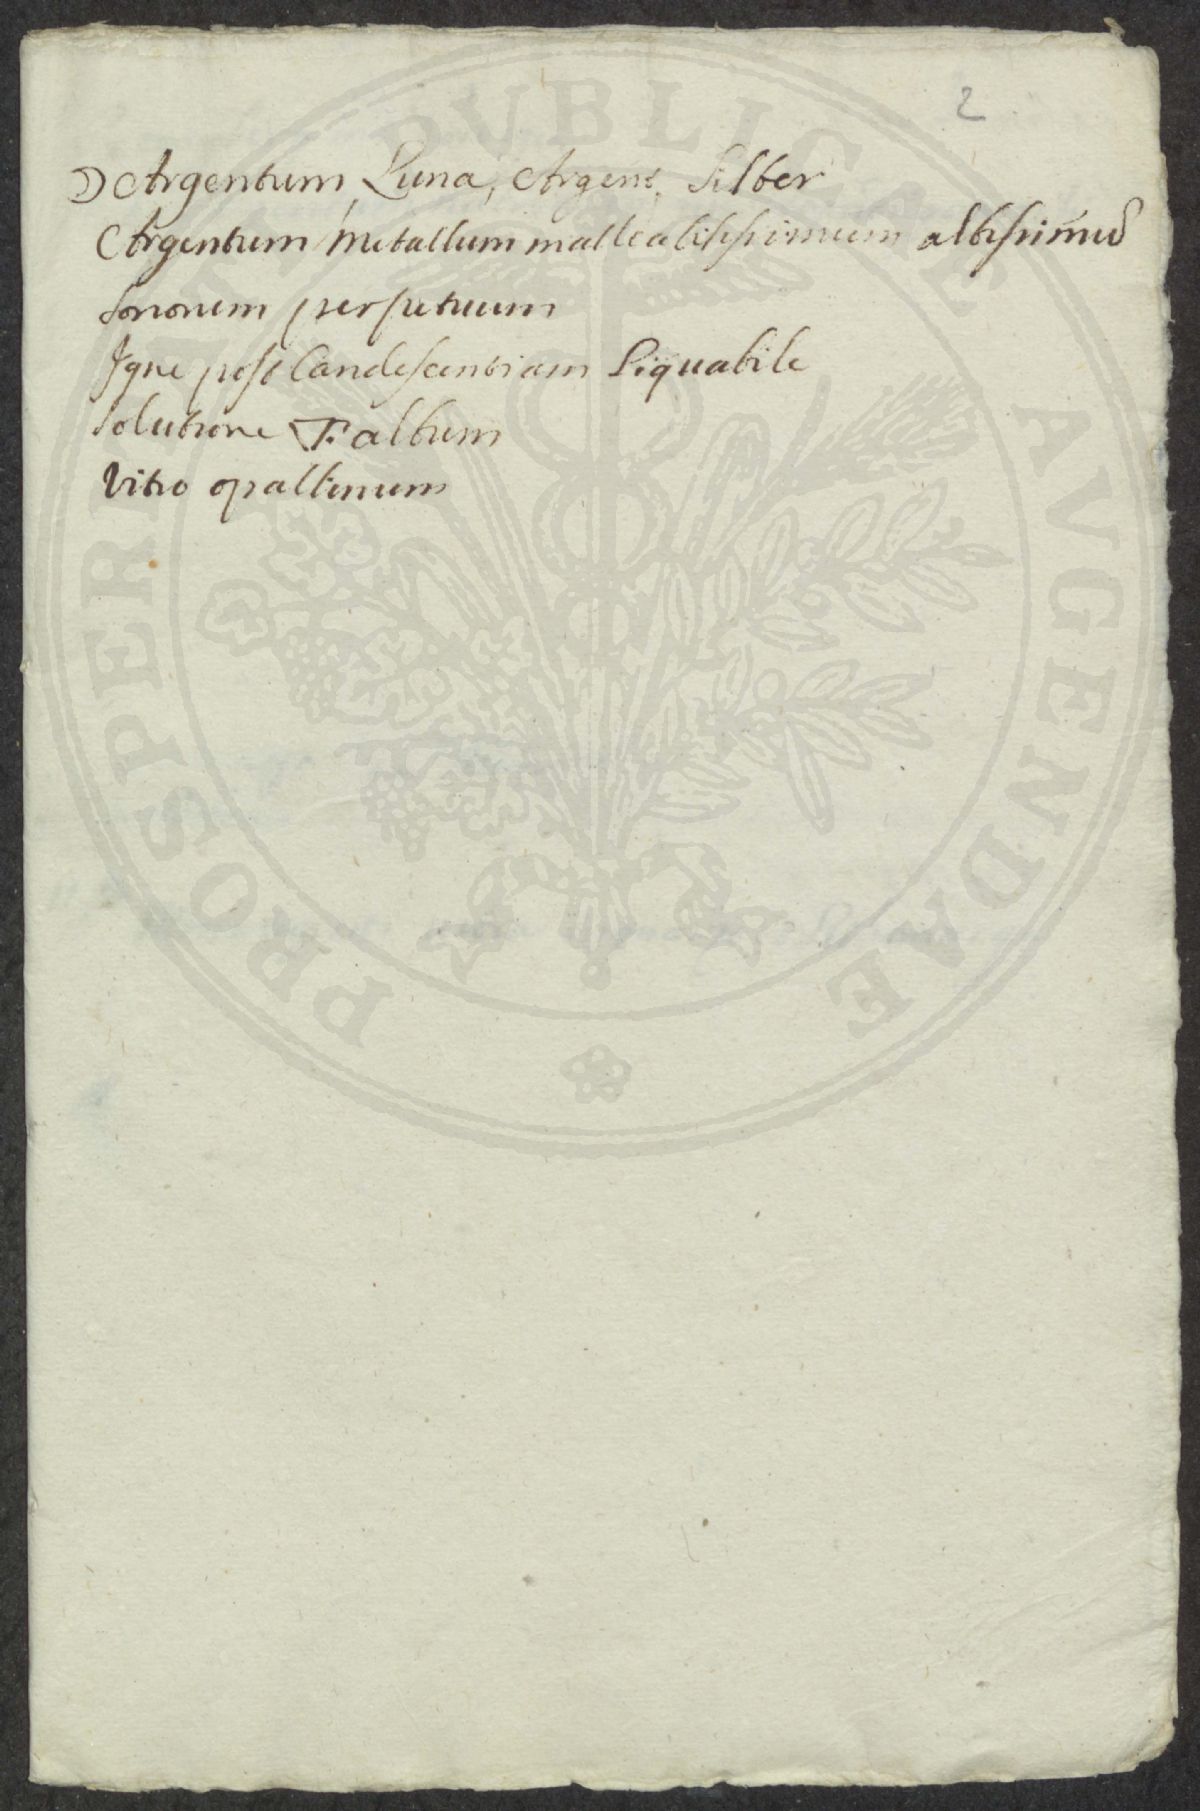 2
☽ Argentum, Luna, Argent, Silber
Argentum Metallum malleabilissimum albissimū
sonorum perpetuum
Igne post Candescentiam liquabile
solutione 🜆 album
Vitro opallinum
PROSPERITATI PVBLICAE AVGENDAE